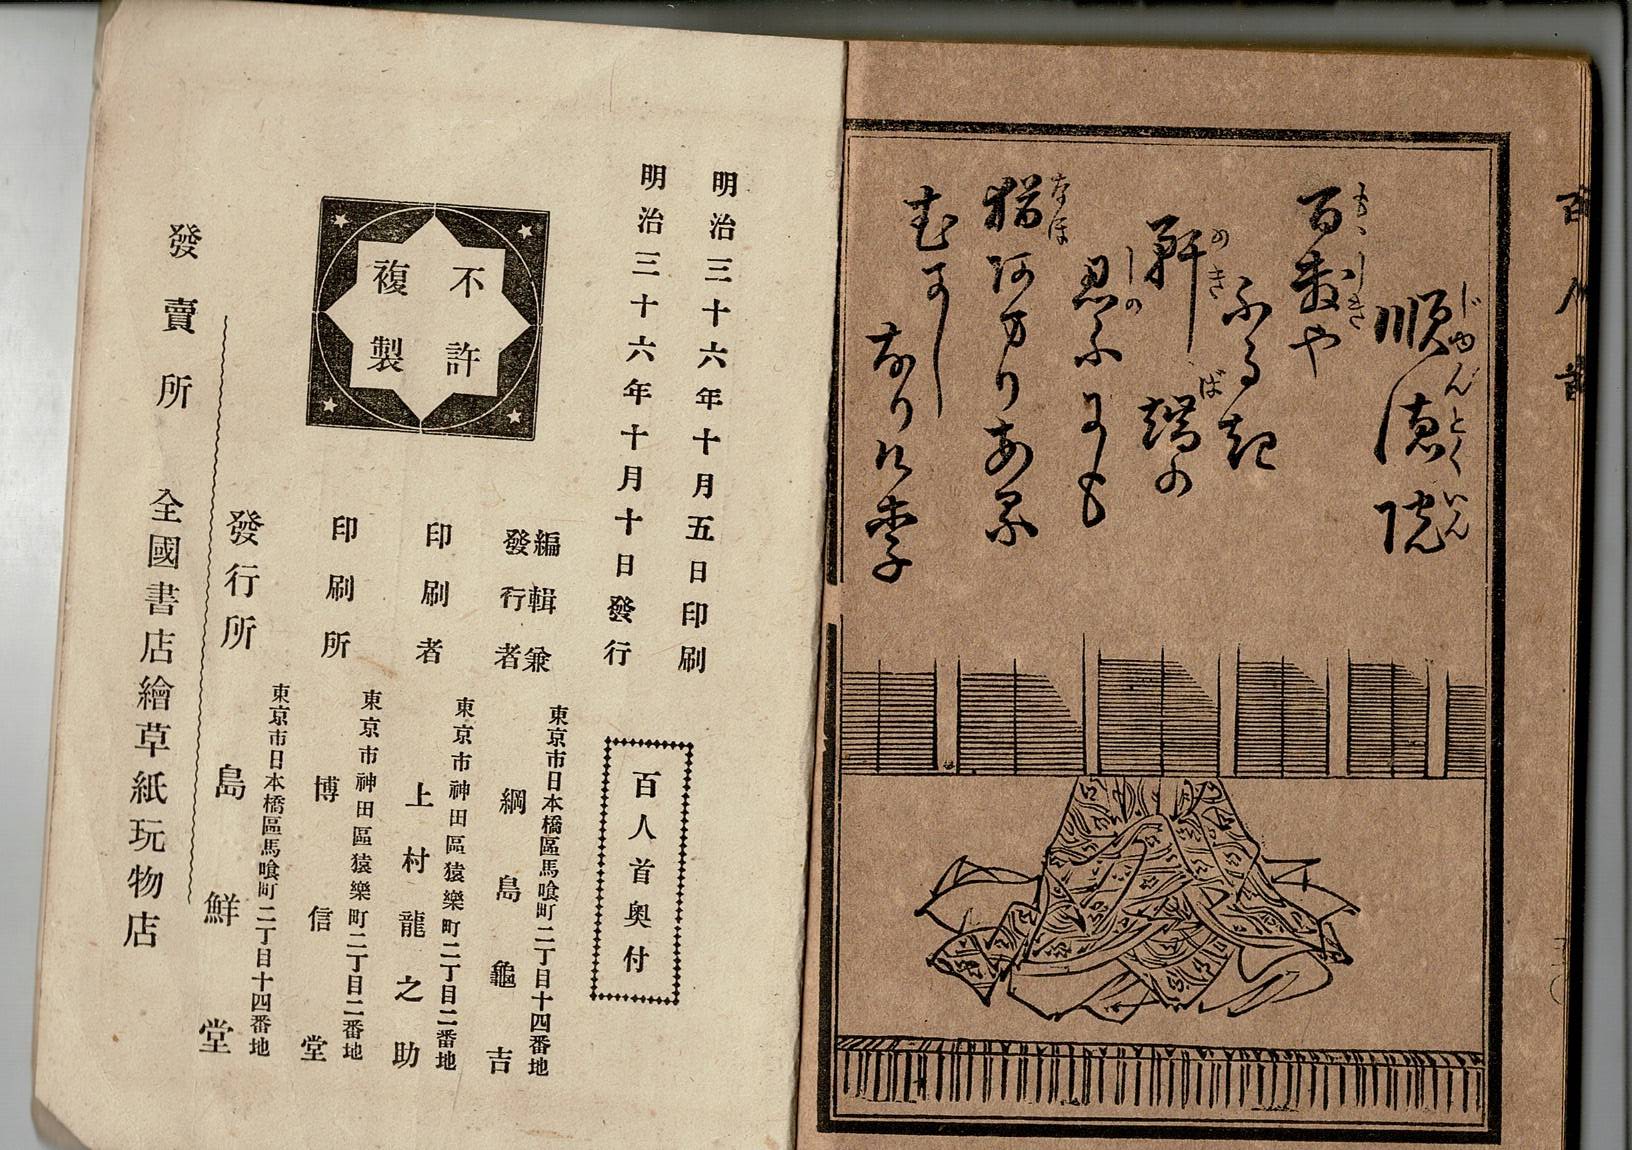 百人首
順徳院
じゆんとくいん
百敷や
もゝしき
ふるき
軒端の
のきば
忍ふにも
しの
猶あまりある
なほ
むかし
なりけり
明治三十六年十月五日印刷
明治三十六年十月十日發行
百人首奥付
編輯兼
發行者
東京市日本橋區馬喰町二丁目十四番地
綱島龜吉
印刷者
東京市神田區猿樂町二丁目二番地
上村龍之助
印刷所
東京市神田區猿樂町二丁目二番地
博信堂
發行所
東京市日本橋區馬喰町二丁目十四番地
島鮮堂
不許
複製
發賣所 全國書店繪草紙玩物店